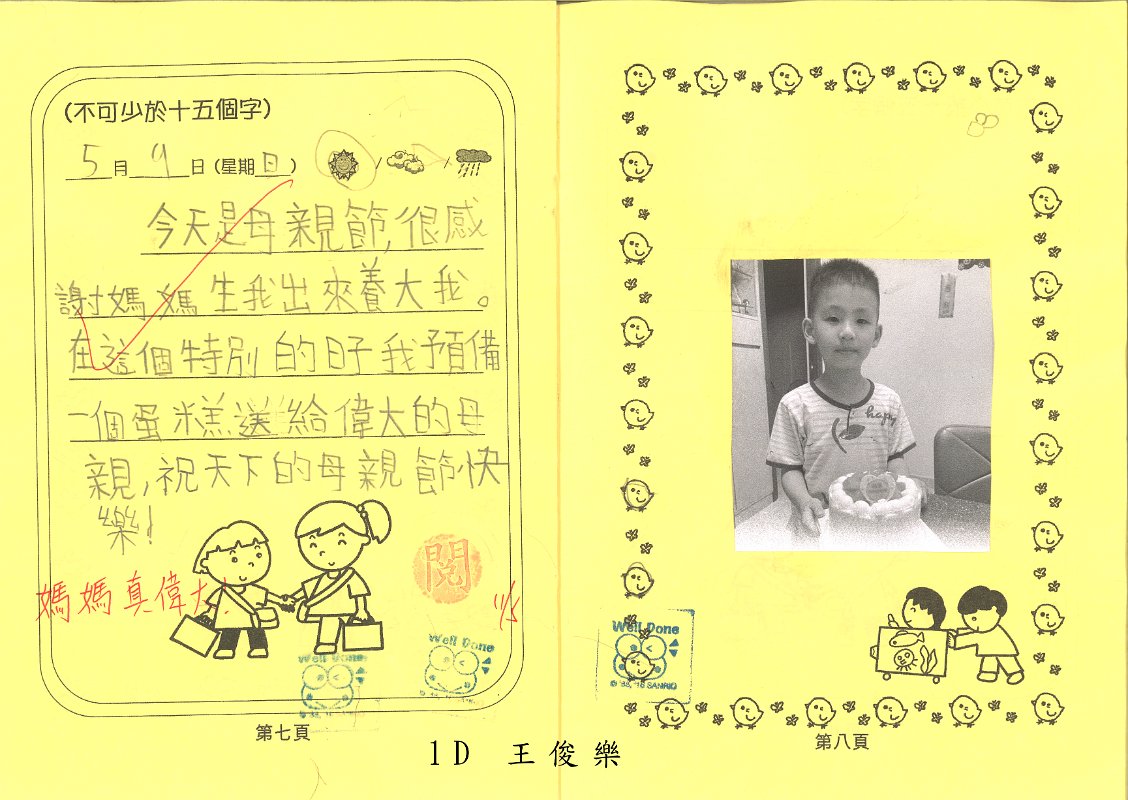 (不可少於十五個字)
5月9日(星期日) / /
今天是母親節,很感
謝媽媽生我出來養大我。
在這個特別的日子我預備
一個蛋糕送給偉大的母
親,祝天下的母親節快
樂!
媽媽真偉大!
閱
11/5
Well Done
Well Done
第七頁
happy
Well Done
© '88, '98 SANRIO
第八頁
1D 王俊樂